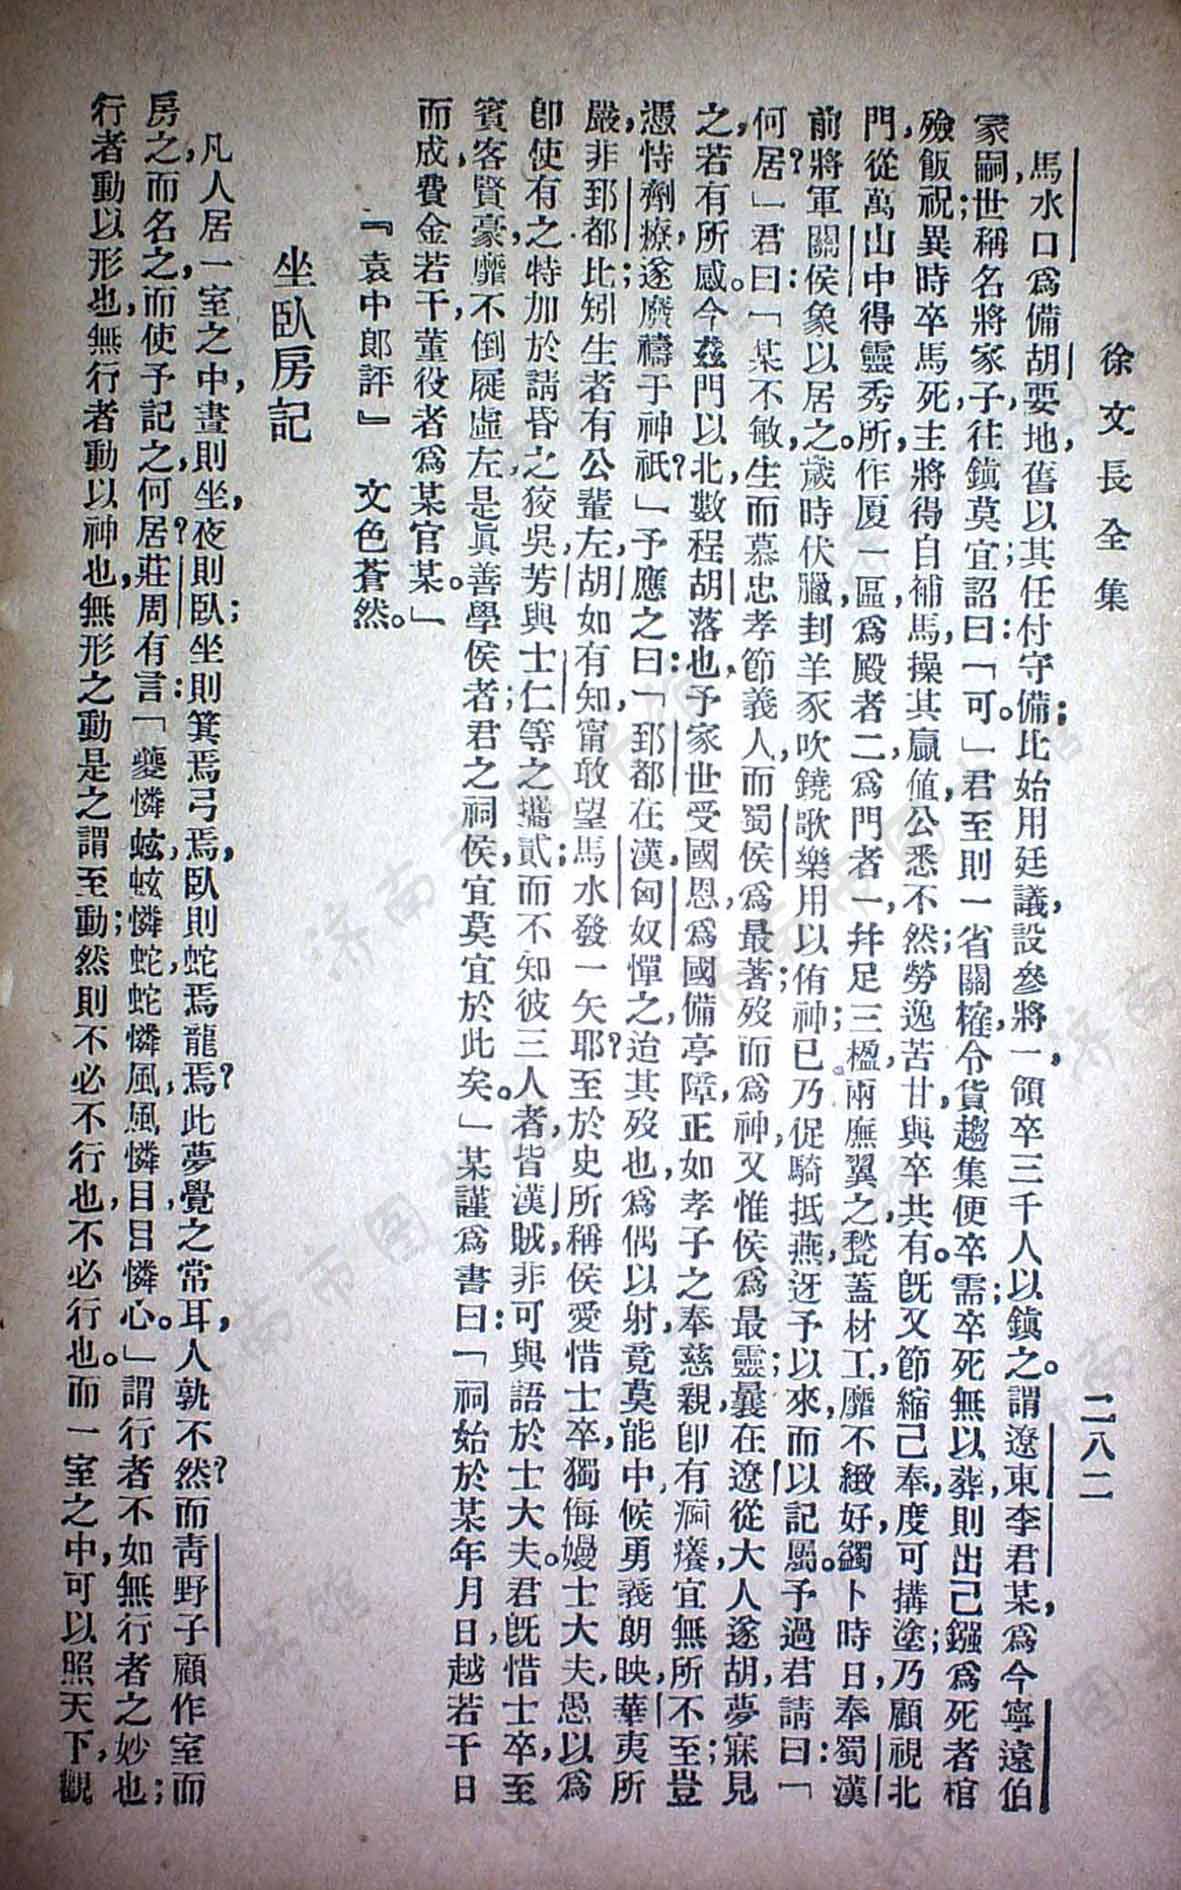 徐文長全集
二八二
馬水口爲備胡要地，舊以其任付守備；比始用廷議，設參將一，領卒三千人以鎮之。謂遼東李君某，爲今寧遠伯
冢嗣，世稱名將家子，往鎮莫宜；詔曰：「可。」君至則一省關榷，令貨趨集，便卒需；卒死無以葬，則出己鏹爲死者棺
殮，飯祝異時卒馬死，主將得自補馬，操其贏值，公悉不然；勞逸苦甘，與卒共有。既又節縮己奉，度可搆塗；乃顧視北
門，從萬山中得靈秀所，作厦一區，爲殿者二，爲門者一，幷足三楹；兩廡翼之，甃蓋材工，靡不緻好，蠲卜時日，奉蜀漢
前將軍關侯象以居之。歲時伏臘，刲羊豕，吹鐃歌樂，用以侑神；已乃促騎抵燕，迓予以來，而以記屬。予過君請曰：「
何居？」君曰：「某不敏，生而慕忠孝節義人，而蜀侯爲最著，歿而爲神，又惟侯爲最靈，曩在遼從大人遂胡，夢寐見
之，若有所感。今茲門以北，數程胡落也，予家世受國恩，爲國備亭障，正如孝子之奉慈親，卽有痾癢，宜無所不至；豈
憑恃劑療，遂廢禱于神祇？」予應之曰：「郅都在漢，匈奴憚之，迨其歿也，爲偶以射，竟莫能中，侯勇義朗映，華夷所
嚴，非郅都比；矧生者有公輩，左胡如有知，甯敢望馬水發一矢耶？至於史所稱侯愛惜士卒，獨侮嫚士大夫，愚以爲
卽使有之，特加於請昏之狡吳，芳與士仁等之攜貳；而不知彼三人者，皆漢賊，非可與語於士大夫。君既惜士卒，至
賓客賢豪，靡不倒屣虛左，是眞善學侯者；君之祠侯，宜莫宜於此矣。」某謹爲書曰：「祠始於某年月日，越若干日
而成，費金若干，董役者爲某官某。」
『袁中郎評』　文色蒼然。
坐臥房記
凡人居一室之中，晝則坐，夜則臥；坐則箕焉弓焉，臥則蛇焉龍焉，此夢覺之常耳，人孰不然？而靑野子顧作室而
房之，而名之，而使予記之，何居？莊周有言：「夔憐蚿，蚿憐蛇，蛇憐風，風憐目，目憐心。」謂行者不如無行者之妙也；
行者動以形也，無行者動以神也，無形之動，是之謂至動；然則不必不行也，不必行也。而一室之中，可以照天下，觀